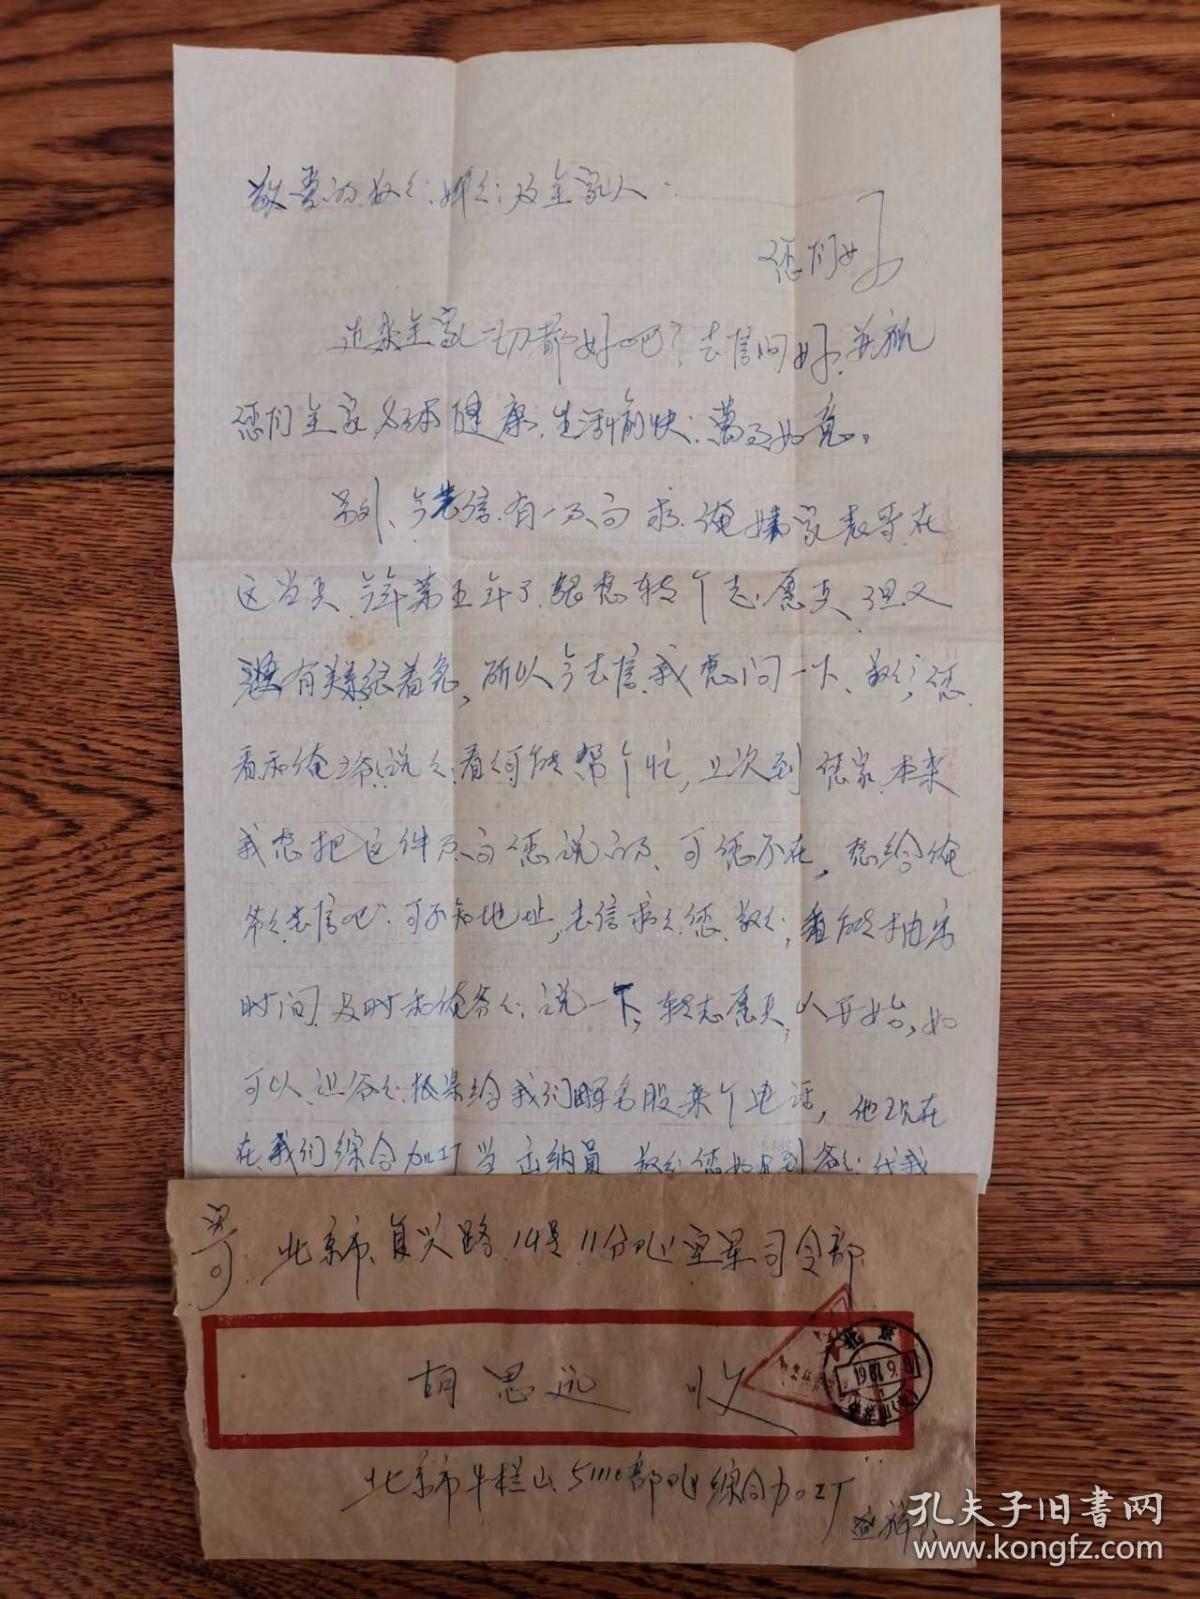 敬爱的叔叔、婶婶及全家人:
您们好
近来全家一切都好吧?去信问好,并祝
您们全家身体健康、生活愉快、萬事如意。
另外、今去信有一事、向求、俺姨家表哥在
这当兵、今年第五年了、很想转个志愿兵、但又
没有关系很着急,所以今去信、我想问一下、叔叔、您
看和俺爷爷说说、看能帮个忙,上次到您家、本来
我想把这件事、向您说的、可您不在,想给俺
爷爷去信吧、可不知地址,去信求求您、叔叔,看能抽出
时间、及时和俺爷爷说一下,转志愿兵,以开始,如
可以、让爷爷根据给我们股来个电话,他现在
在我们综合加工厂当出纳员、叔叔您如见到爷爷、代我
寄:北京市、复兴路14号11分队空军司令部
胡思远 收
北京
198 .9.
北京市牛栏山51110部队综合加工厂
孔夫子旧书网
www.kongfz.com